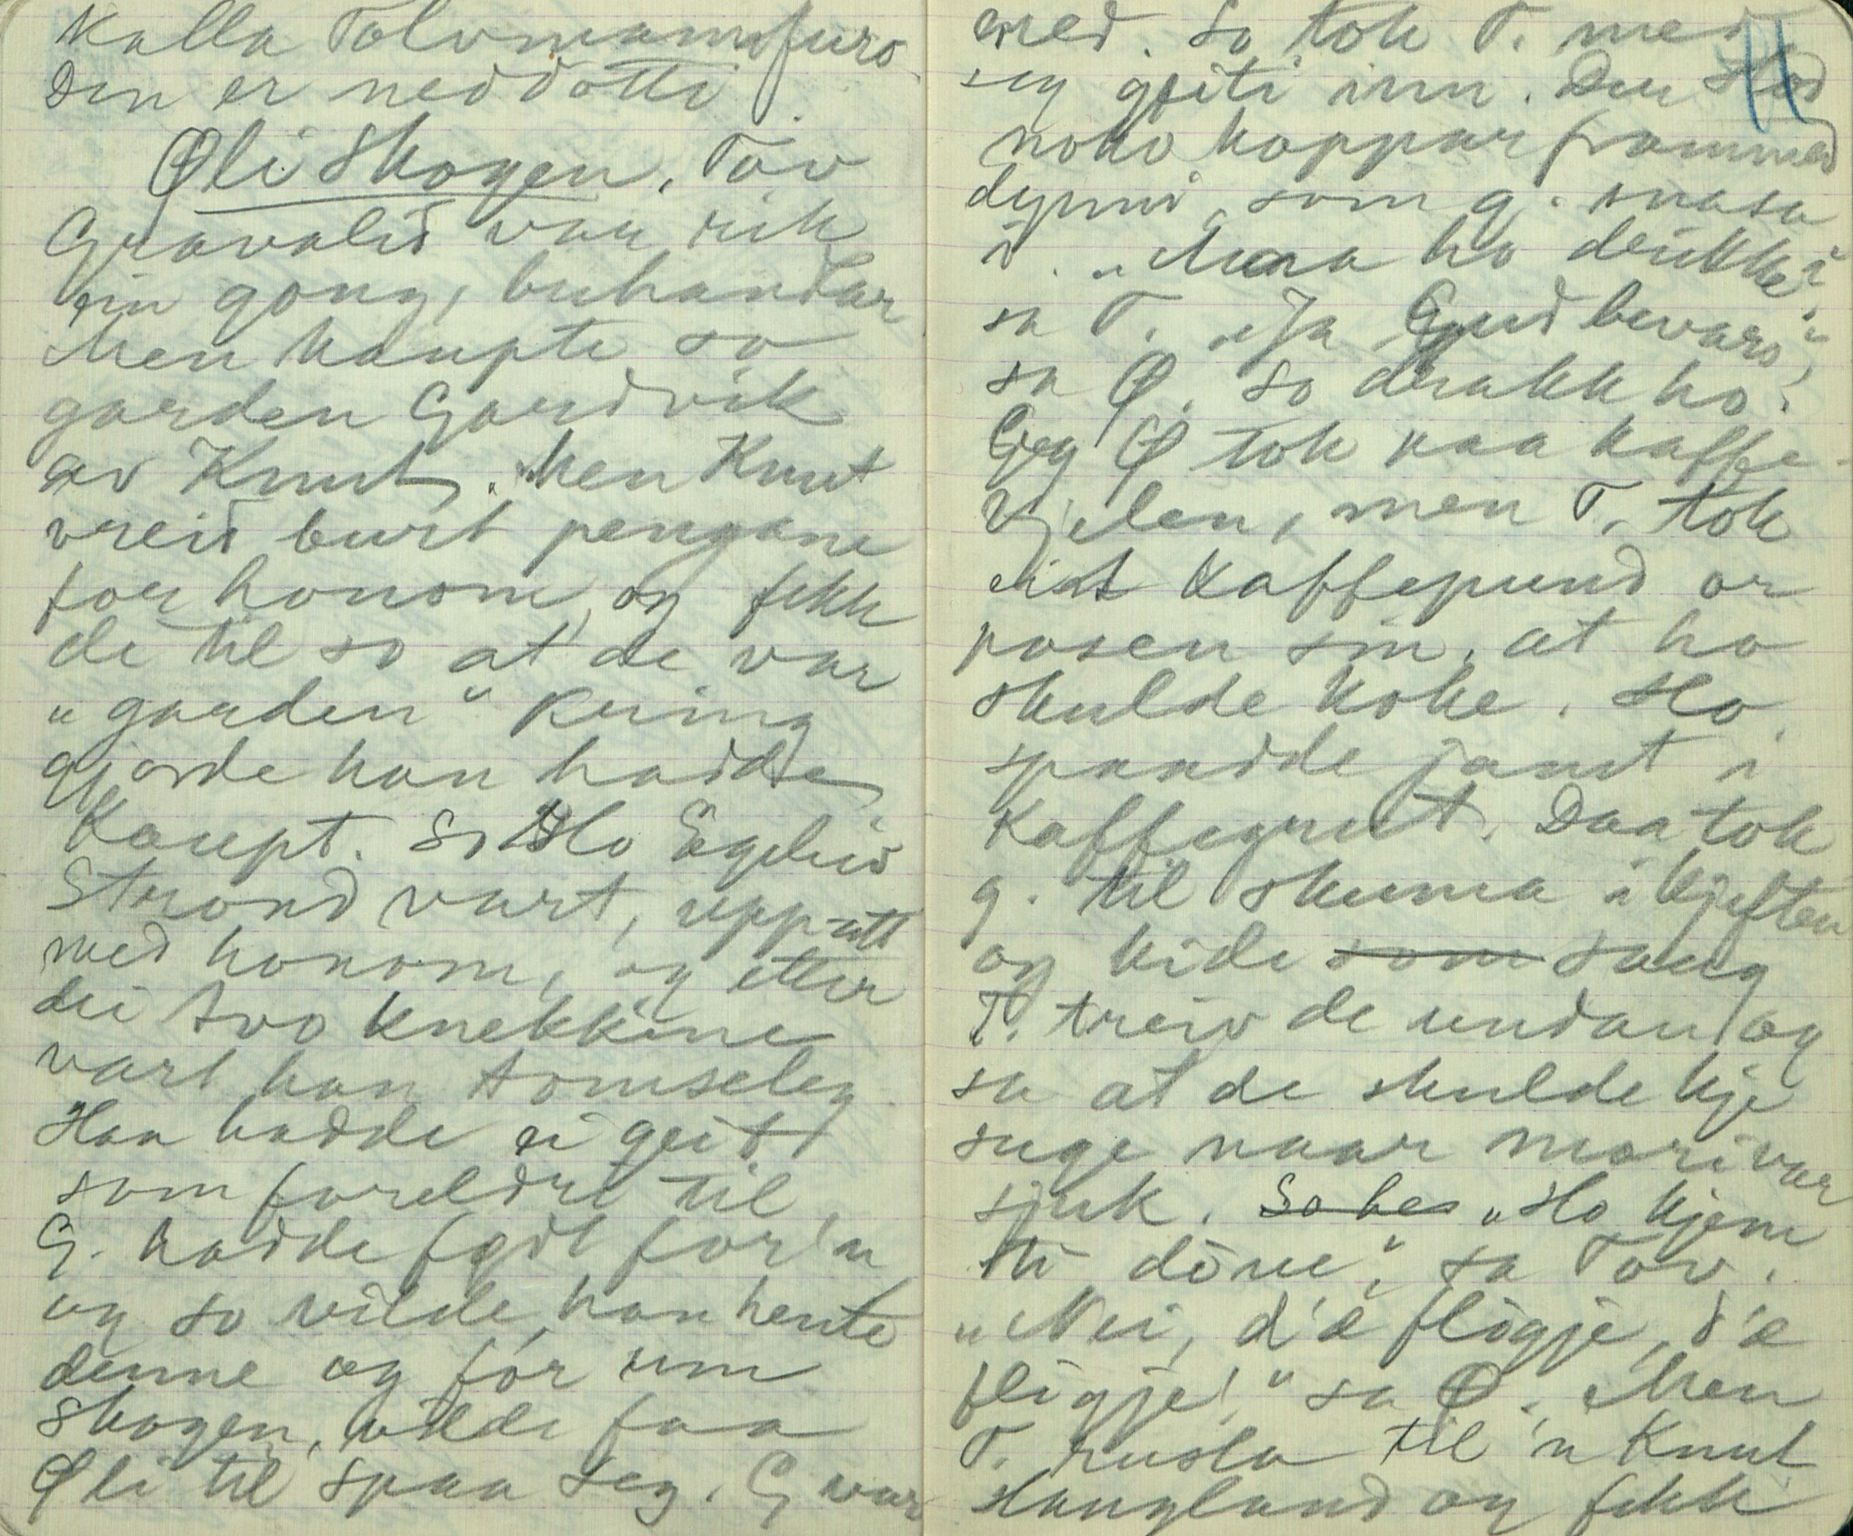 kalla Tolvmannsfuro
Den er neddotti.
Øli Skogen. Tov
Gravalid var rik
ein gong, buhandlar
Men kaupte so
garden Gardvik
av Knut. Men Knut
vreid burt pengane
for honom, og fekk
de til so at de var
"garden" Kring
gjorde han hadde
kaupt. So Egelid
Strond vart, uppatt
med honom, og etter
dei tvo knekkine
vart han tomseleg
Han hadde ei geit
som foreldri til
G. hadde født for'n
og so vilde han hente
denne og for um
Skogen, vilde faa
Øli til spaa seg. G var
11
med. So tok T. med
seg geiti inn. Der stod
noko koppar frammed
dynni, som g. snasa
i. "Maa ho drikke?"
sa T. "Ja Gud bevars",
sa Ø. So drakk ho.
Gjeg Ø tok paa kaffe-
kjelen, men T. tok
eist Kaffepund or
posen sin, at ho
skulde koke. Ho
spaadde jamt i
Kaffegrut. Daa tok
g. til skuma i kjeften
og kide som saug
T. treiv de undan og
sa at de skulde kje
suge naar mori var
sjuk. So hes "Ho kjem
te döue", sa Tov.
"Nei, d'æ fligje, d'æ
fligje!" sa Ø. Men
T. rusla til 'n Knut
Haugland og fekk